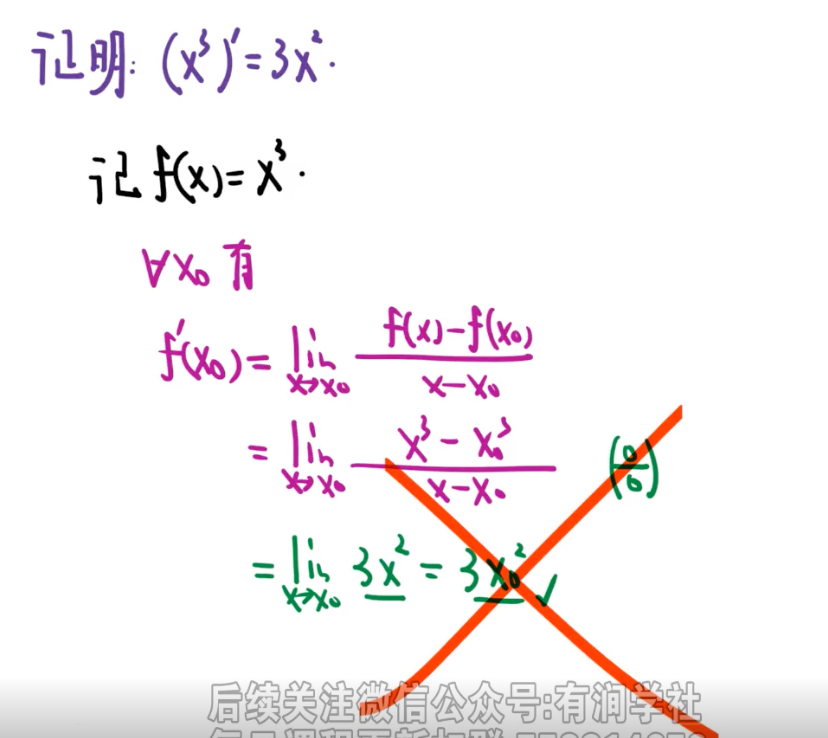 证明: (x³)' = 3x².
记 f(x) = x³.
∀x₀ 有
f'(x₀) = lim x→x₀ (f(x) - f(x₀)) / (x - x₀)
= lim x→x₀ (x³ - x₀³) / (x - x₀) (0/0)
= lim x→x₀ 3x² = 3x₀² ✓
后续关注微信公众号:有润学社